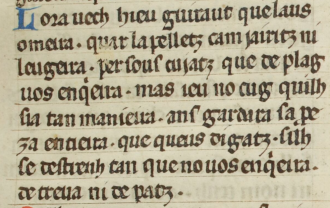 Lora uech hieu guiraut que laus
omeira · quar la pelletz cam iauritz ni
leugeira · per sous cuiatz que de plag
uos enqeira · mas ieu no cug quilh
sia tan maniera · ans gardara sa pe
za entieira · que queus digatz · silh
se destrenh tan que no uos enqeira ·
de treua ni de patz ·